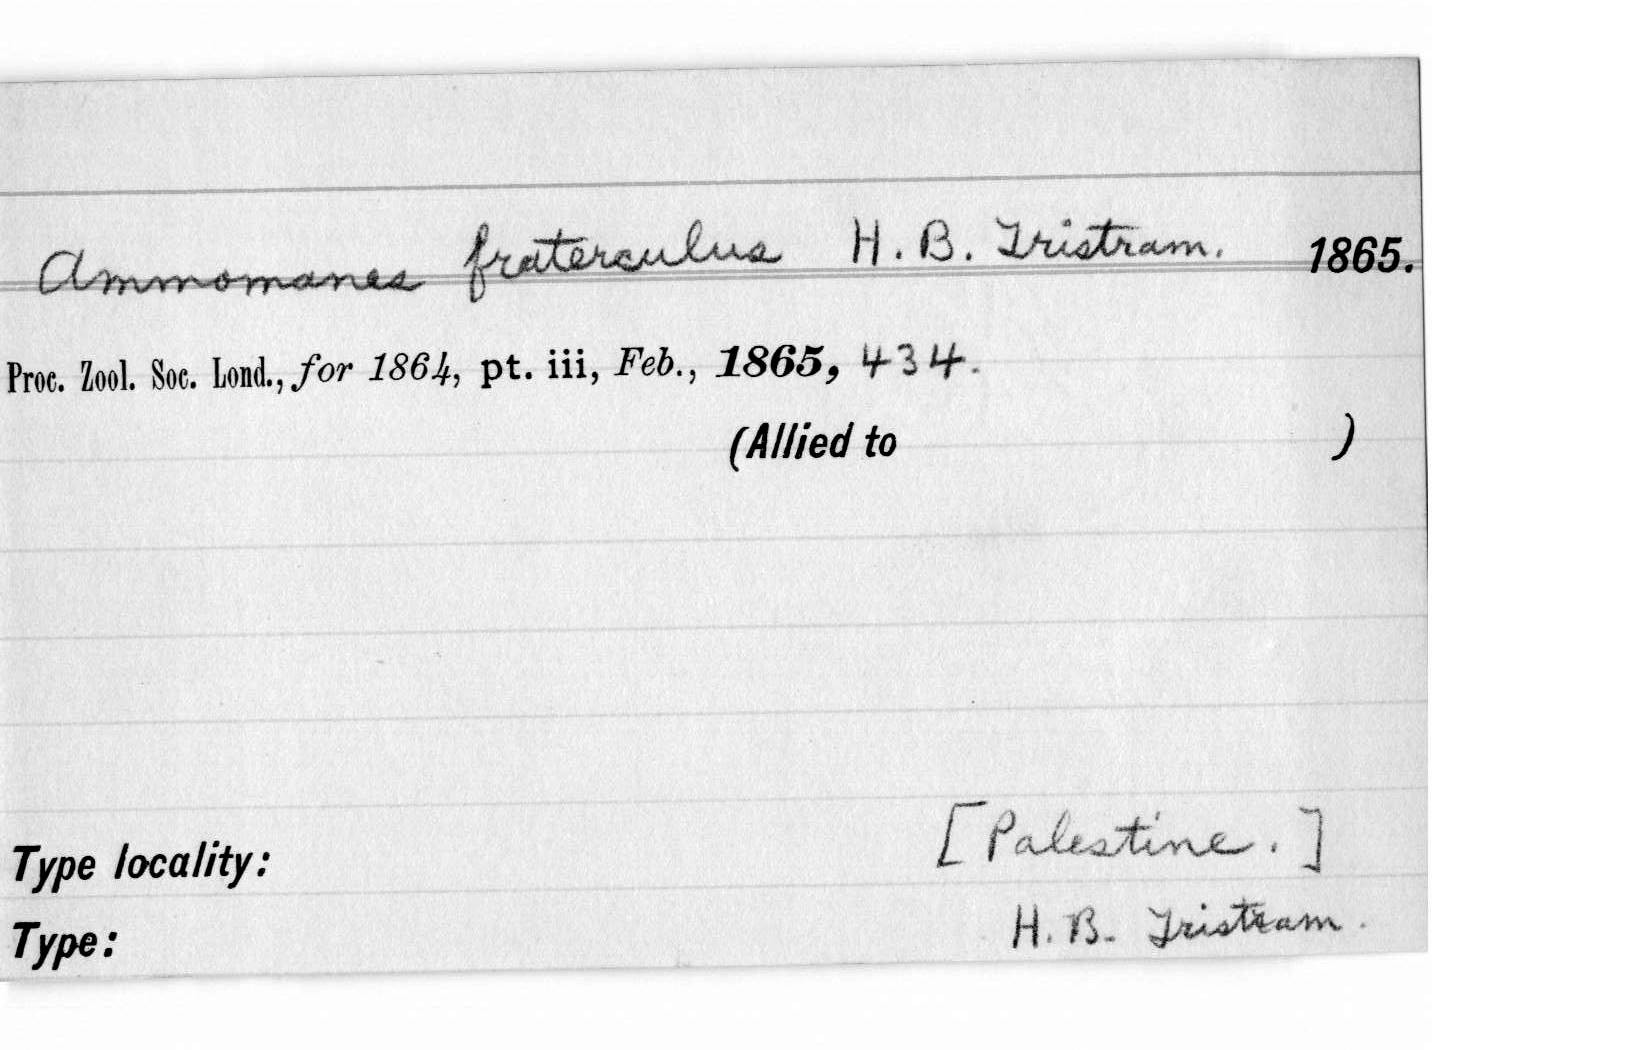 Ammomanes fraterculus H. B. Tristram. 1865.
Proc. Zool. Soc. Lond., for 1864, pt. iii, Feb., 1865, 434.
(Allied to )
Type locality: [Palestine.]
Type: H. B. Tristram.